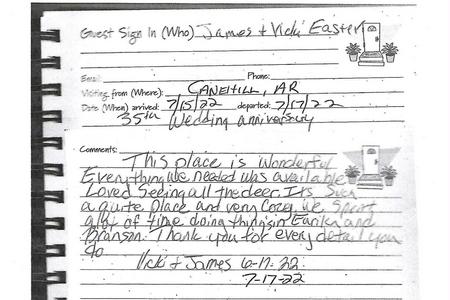 Guest Sign In (Who) James & Vicki Easter
Email: Phone:
Visiting from (Where): CANEHILL, AR
Date (When) arrived: 7/15/22 departed: 7/17/22
35th Wedding anniversary
Comments:
This place is wonderful
Everything we needed was available
Loved seeing all the deer. Its such
a quite place and very cozy. we spent
a lot of time doing things in Eureka and
Branson. Thank you for every detail you
do
Vicki & James 6-17-22
7-17-22